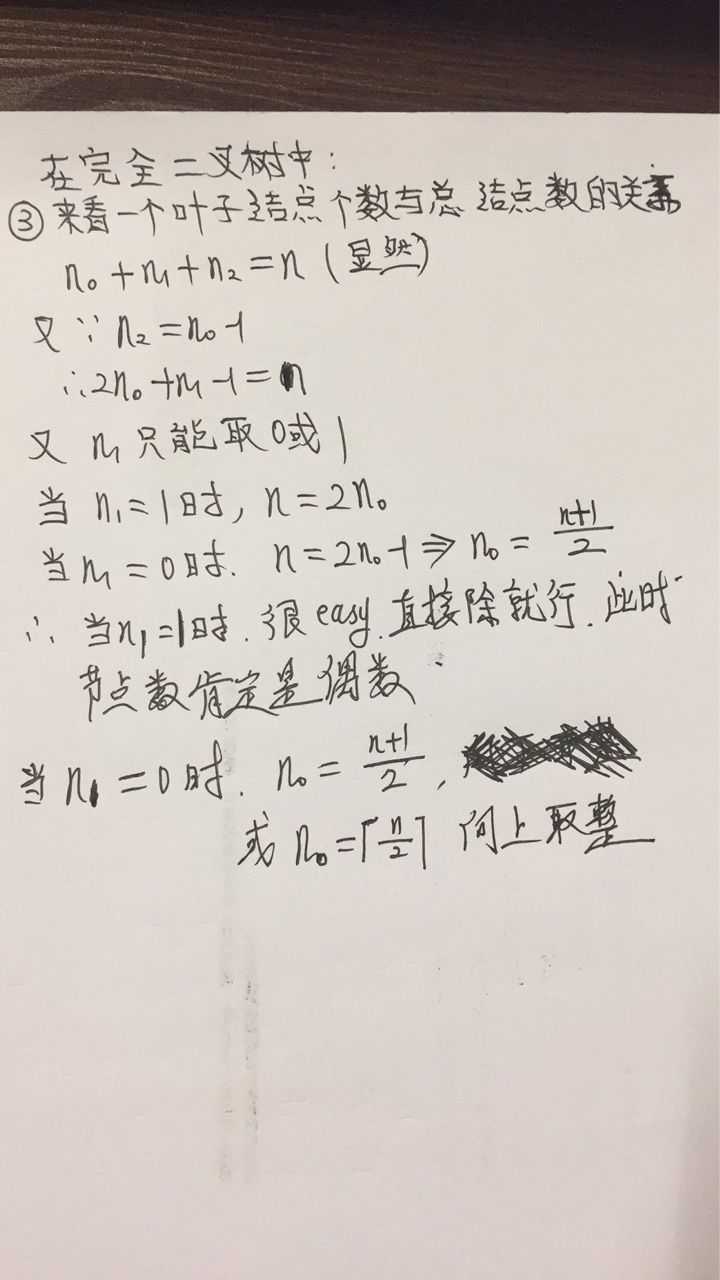 在完全二叉树中:
③来看一个叶子结点个数与总结点数的关系
n₀+n₁+n₂=n (显然)
又∵n₂=n₀-1
∴2n₀+n₁-1=n
又 n₁只能取0或1
当 n₁=1时, n=2n₀
当 n₁=0时. n=2n₀-1⇒n₀=(n+1)/2
∴ 当n₁=1时.很easy.直接除就行.此时
节点数肯定是偶数.
当 n₁=0时. n₀=(n+1)/2,
或 n₀=⌈n/2⌉ 向上取整